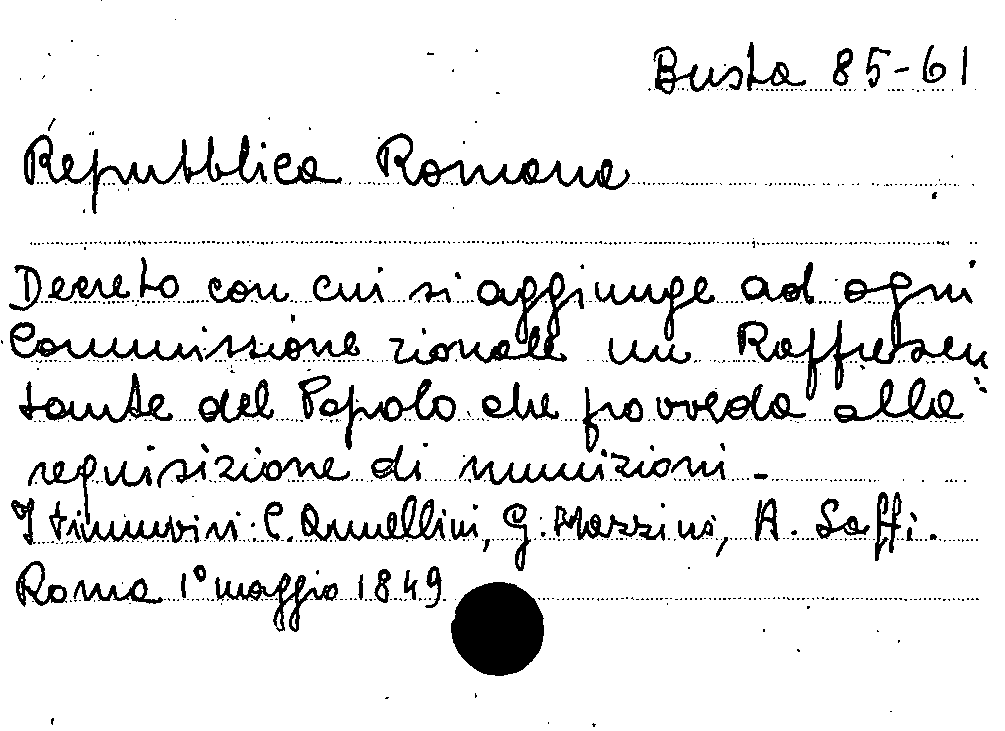 Busta 85-61
Repubblica Romana
Decreto con cui si aggiunge ad ogni
Commissione rionale un Rappresen
tante del Popolo che provveda alla
requisizione di munizioni -
I triumviri: C. Armellini, G. Mazzini, A. Saffi.
Roma 1° maggio 1849